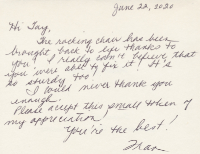 June 22, 2020
Hi Jay,
The rocking chair has been
brought back to life thanks to
you! I really can't believe that
you were able to fix it! It is
so sturdy too!
I could never thank you
enough.
Please accept this small token of
my appreciation!
You're the best!
Fran